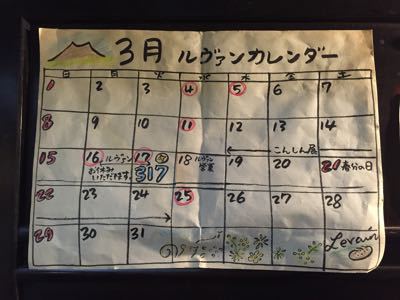 3月 ルヴァンカレンダー
日 月 火 水 木 金 土
1 2 3 4 5 6 7
8 9 10 11 12 13 14
こんしん展
15 16 ルヴァン 17 18 ルヴァン営業 19 20 21 春分の日
お休みいただきます。 317
22 23 24 25 26 27 28
29 30 31
Levain